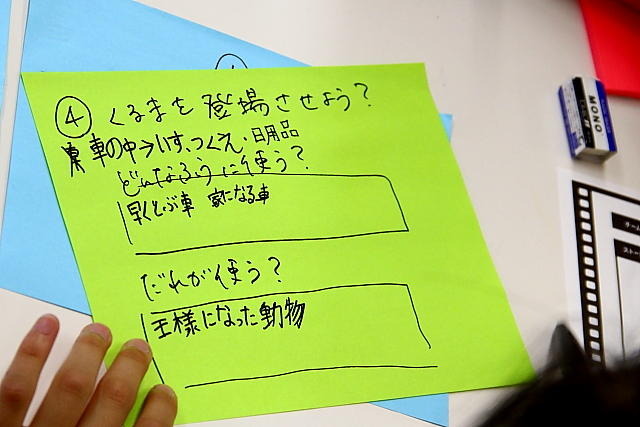 ④ くるまを登場させよう?
車の中→いす、つくえ・日用品
どんなふうに使う?
早くとぶ車 家になる車
だれが使う?
王様になった動物
MONO
チーム
ストー